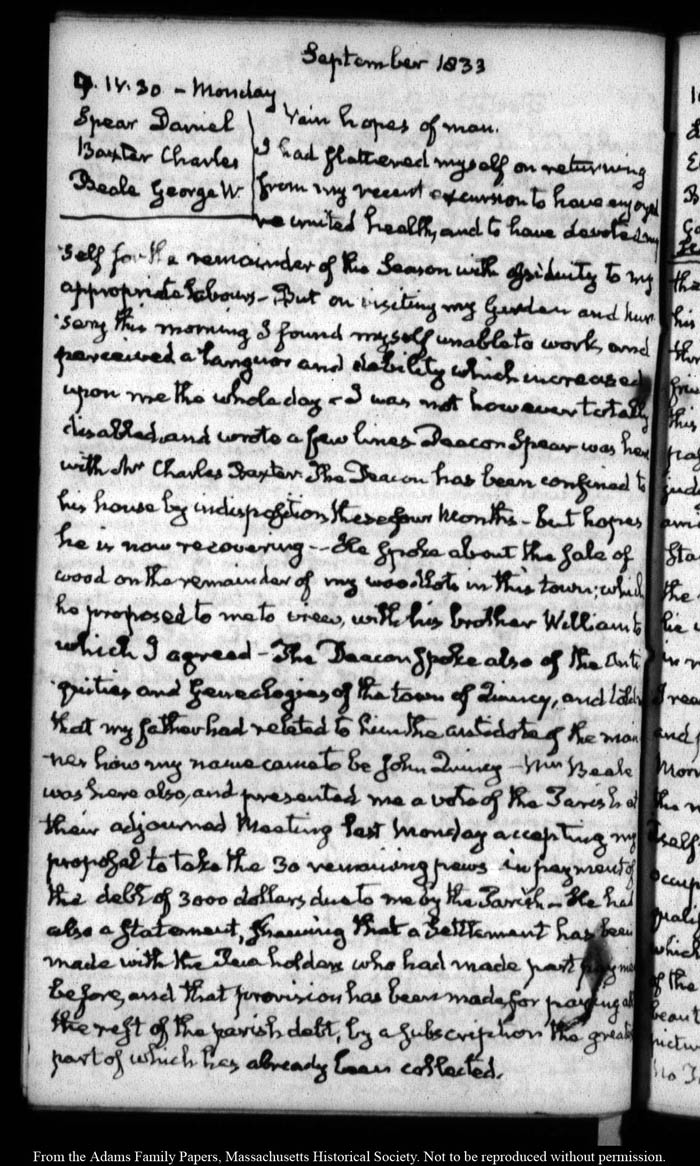 September 1833
9. IV.30 - Monday
Spear Daniel
Baxter Charles
Beale George W.
Vain hopes of man.
I had flattered myself on returning
from my recent excursion to have enjoyed
re united health, and to have devoted my
self for the remainder of the Season with assiduity to my
appropriate labours - But on visiting my Garden and Nur
sery this morning I found myself unable to work, and
perceived a languor and debility which increased
upon me the whole day - I was not however totally
disabled, and wrote a few lines. Deacon Spear was here
with Mr Charles Baxter. The Deacon has been confined to
his house by indisposition these four Months - but hopes
he is now recovering - He spoke about the sale of
wood on the remainder of my woodlots in this town; which
he proposed to me to view, with his brother William to
which I agreed - The Deacon spoke also of the Anti
quities and Genealogies of the town of Quincy, and told
that my father had related to him the antidote of the man
ner how my name came to be John Quincy - Mr Beale
was here also, and presented me a vote of the Parish at
their adjourned Meeting last Monday accepting my
proposal to take the 30 remaining pews in payment of
the debt of 3000 dollars due to me by the Parish - He had
also a Statement, shewing that a Settlement has been
made with the Pew holders who had made part payme
before, and that provision has been made for paying all
the rest of the parish debt, by a subscription the greater
part of which has already been collected.
From the Adams Family Papers, Massachusetts Historical Society. Not to be reproduced without permission.